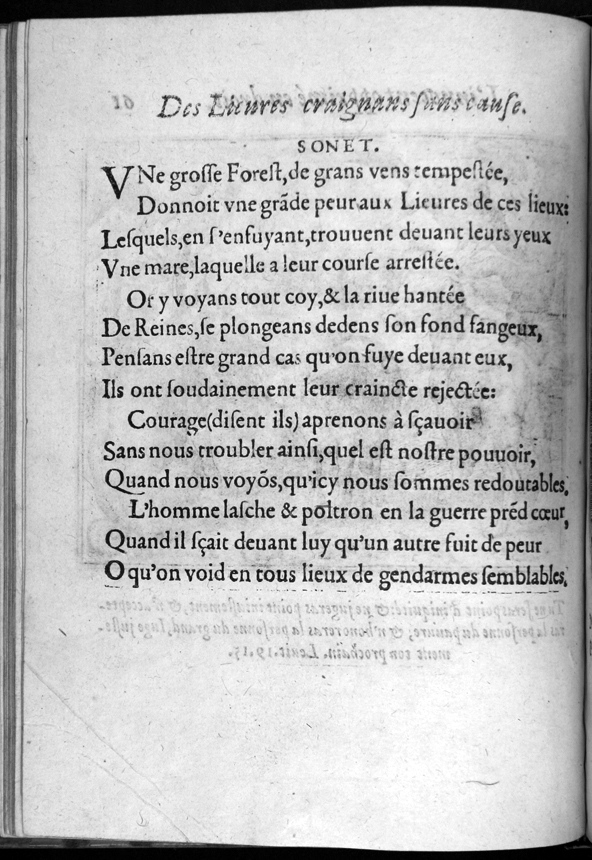 Des Lieures craignans sans cause.
SONET.
VNe grosse Forest, de grans vens tempestée,
Donnoit vne grãde peur aux Lieures de ces lieux:
Lesquels, en s'enfuyant, trouuent deuant leurs yeux
Vne mare, laquelle a leur course arrestée.
Or y voyans tout coy, & la riue hantée
De Reines, se plongeans dedens son fond fangeux,
Pensans estre grand cas qu'on fuye deuant eux,
Ils ont soudainement leur craincte rejectée:
Courage (disent ils) aprenons à sçauoir
Sans nous troubler ainsi, quel est nostre pouuoir,
Quand nous voyõs, qu'icy nous sommes redoutables,
L'homme lasche & poltron en la guerre prẽd cœur,
Quand il sçait deuant luy qu'un autre fuit de peur
O qu'on void en tous lieux de gendarmes semblables.